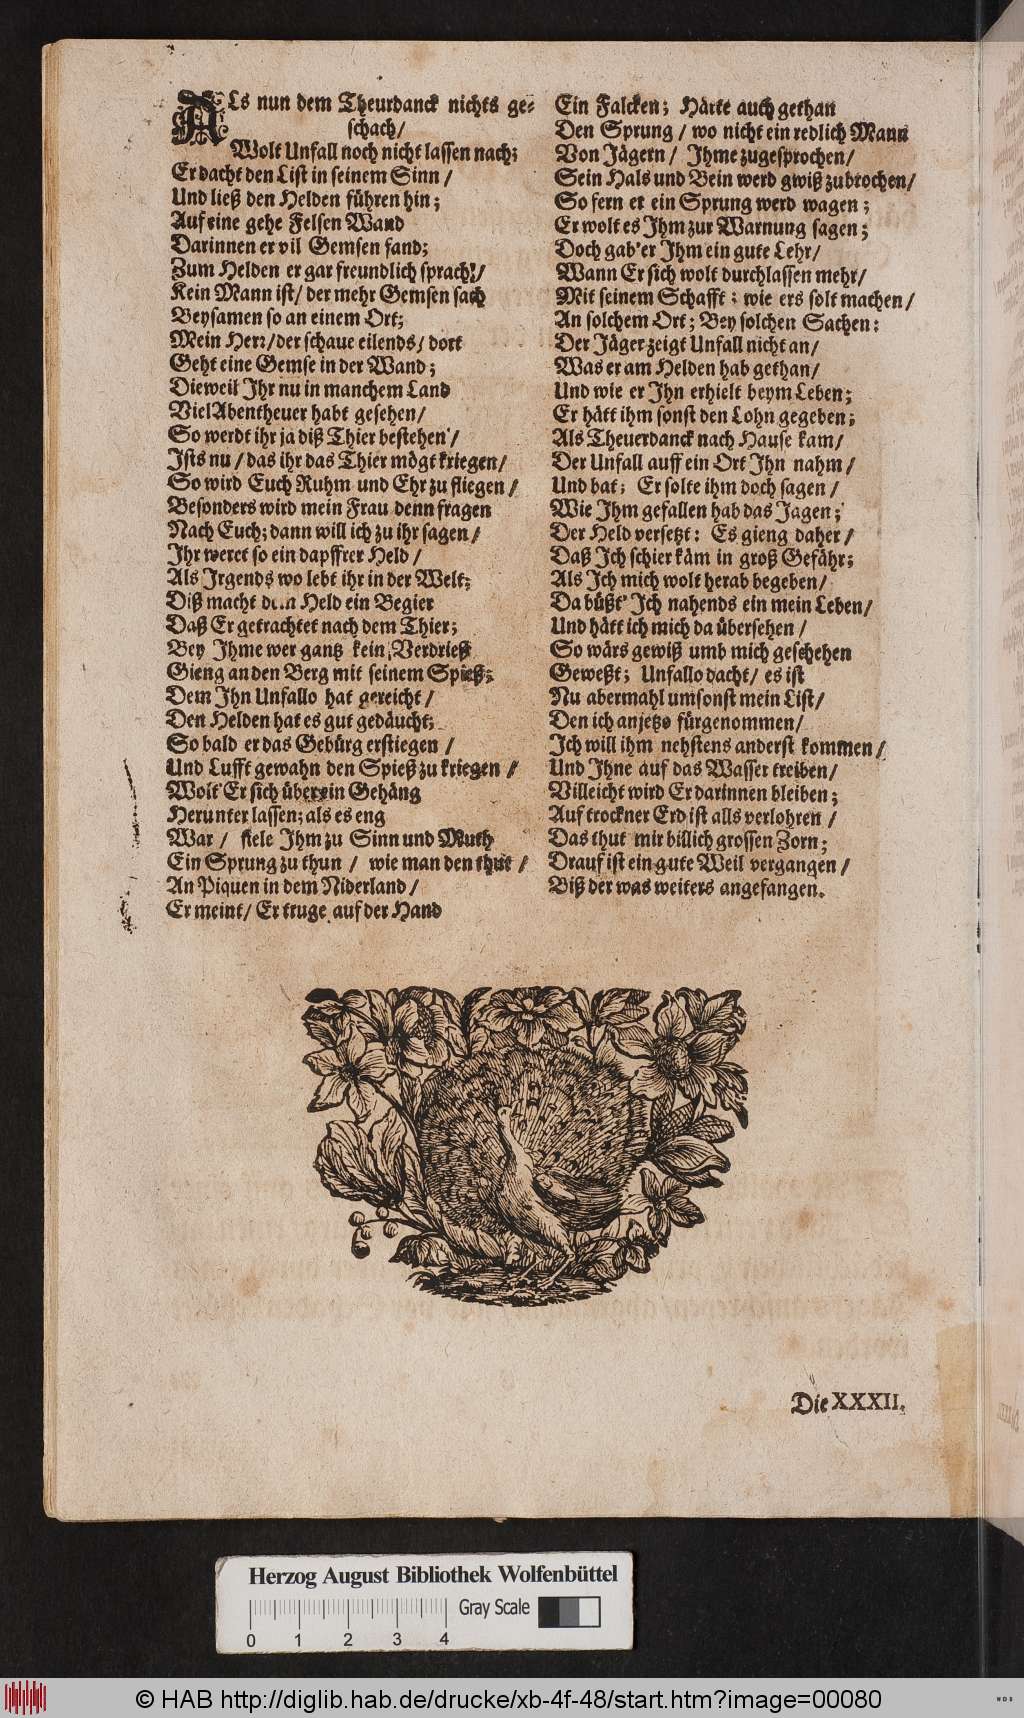 ALs nun dem Theurdanck nichts ge-
schach/
Wolt Unfall noch nicht lassen nach;
Er dacht den List in seinem Sinn /
Und ließ den Helden führen hin;
Auf eine gehe Felsen Wand
Darinnen er vil Gemsen fand;
Zum Helden er gar freundlich sprach!/
Kein Mann ist/ der mehr Gemsen sach
Beysamen so an einem Ort;
Mein Herr/der schaue eilends/ dort
Geht eine Gemse in der Wand;
Dieweil Ihr nu in manchem Land
Viel Abentheuer habt gesehen/
So werdt ihr ja diß Thier bestehen/
Ists nu / das ihr das Thier mögt kriegen/
So wird Euch Ruhm und Ehr zu fliegen /
Besonders wird mein Frau denn fragen
Nach Euch; dann will ich zu ihr sagen /
Ihr weret so ein dapffrer Held /
Als Irgends wo lebt ihr in der Welt;
Diß macht dem Held ein Begier
Daß Er getrachtet nach dem Thier;
Bey Ihme wer gantz kein Verdrieß
Gieng an den Berg mit seinem Spieß;
Dem Ihn Unfallo hat gereicht /
Den Helden hat es gut gedäucht;
So bald er das Gebürg erstiegen /
Und Lufft gewahn den Spieß zu kriegen /
Wolt Er sich über ein Gehäng
Herunter lassen; als es eng
War / fiele Ihm zu Sinn und Muth
Ein Sprung zu thun / wie man den thut /
An Piquen in dem Niderland /
Er meint/ Er truge auf der Hand
Ein Falcken; Hätte auch gethan
Den Sprung / wo nicht ein redlich Mann
Von Jägern / Ihme zugesprochen/
Sein Hals und Bein werd gwiß zubrochen/
So fern er ein Sprung werd wagen;
Er wolt es Ihm zur Warnung sagen;
Doch gab'er Ihm ein gute Lehr/
Wann Er sich wolt durchlassen mehr/
Mit seinem Schafft; wie ers solt machen/
An solchem Ort; Bey solchen Sachen:
Der Jäger zeigt Unfall nicht an/
Was er am Helden hab gethan/
Und wie er Ihn erhielt beym Leben;
Er hätt ihm sonst den Lohn gegeben;
Als Theuerdanck nach Hause kam/
Der Unfall auff ein Ort Ihn nahm/
Und bat; Er solte ihm doch sagen /
Wie Ihm gefallen hab das Jagen;
Der Held versetzt: Es gieng daher /
Daß Ich schier käm in groß Gefähr;
Als Ich mich wolt herab begeben/
Da büßt' Ich nahends ein mein Leben/
Und hätt ich mich da übersehen /
So wärs gewiß umb mich geschehen
Geweßt; Unfallo dacht/ es ist
Nu abermahl umsonst mein List/
Den ich anjetzo fürgenommen/
Ich will ihm nehstens anderst kommen/
Und Ihne auf das Wasser treiben/
Villeicht wird Er darinnen bleiben;
Auf trockner Erd ist alls verlohren /
Das thut mir billich grossen Zorn;
Drauf ist ein gute Weil vergangen /
Biß der was weiters angefangen.
Die XXXII.
Herzog August Bibliothek Wolfenbüttel
Gray Scale
0 1 2 3 4
© HAB http://diglib.hab.de/drucke/xb-4f-48/start.htm?image=00080